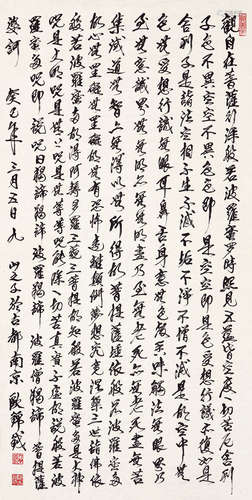 觀自在菩薩行深般若波羅蜜多時照見五蘊皆空度一切苦厄舍利
子色不異空空不異色色即是空空即是色受想行識亦復如是
舍利子是諸法空相不生不滅不垢不淨不增不減是故空中無
色無受想行識無眼耳鼻舌身意無色聲香味觸法無眼界
乃至無意識界無無明亦無無明盡乃至無老死亦無老死盡無苦
集滅道無智亦無得以無所得故菩提薩埵依般若波羅蜜多
故心無罣礙無罣礙故無有恐怖遠離顛倒夢想究竟涅槃三世諸佛依
般若波羅蜜多故得阿耨多羅三藐三菩提故知般若波羅蜜多是大神
咒是大明咒是無上咒是無等等咒能除一切苦真實不虛故說般若波
羅蜜多咒即說咒曰揭諦揭諦波羅揭諦波羅僧揭諦菩提薩
婆訶 癸巳年三月五日 山之子於古都南京